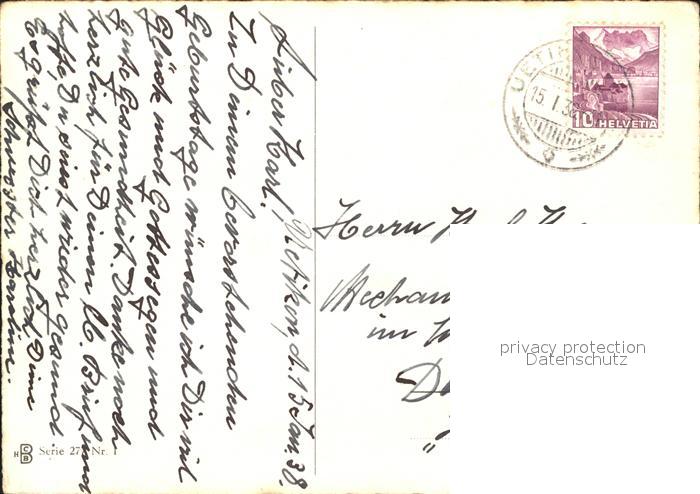 Uetikon, d. 15 Jan. 38.
Lieber Karl!
Zu Deinem bevorstehenden
Geburtstage wünsche ich Dir viel
Glück und Gottessegen und
Gute Gesundheit. Danke noch
herzlich für Deinen lb. Brief und
hoffe, Du seist wieder gesund.
Es grüsst Dich herzlich Deine
Schwester
Herrn
im
"
UETI
15. I. 38
10 HELVETIA
privacy protection
Datenschutz
H C B Serie 27 Nr. 1